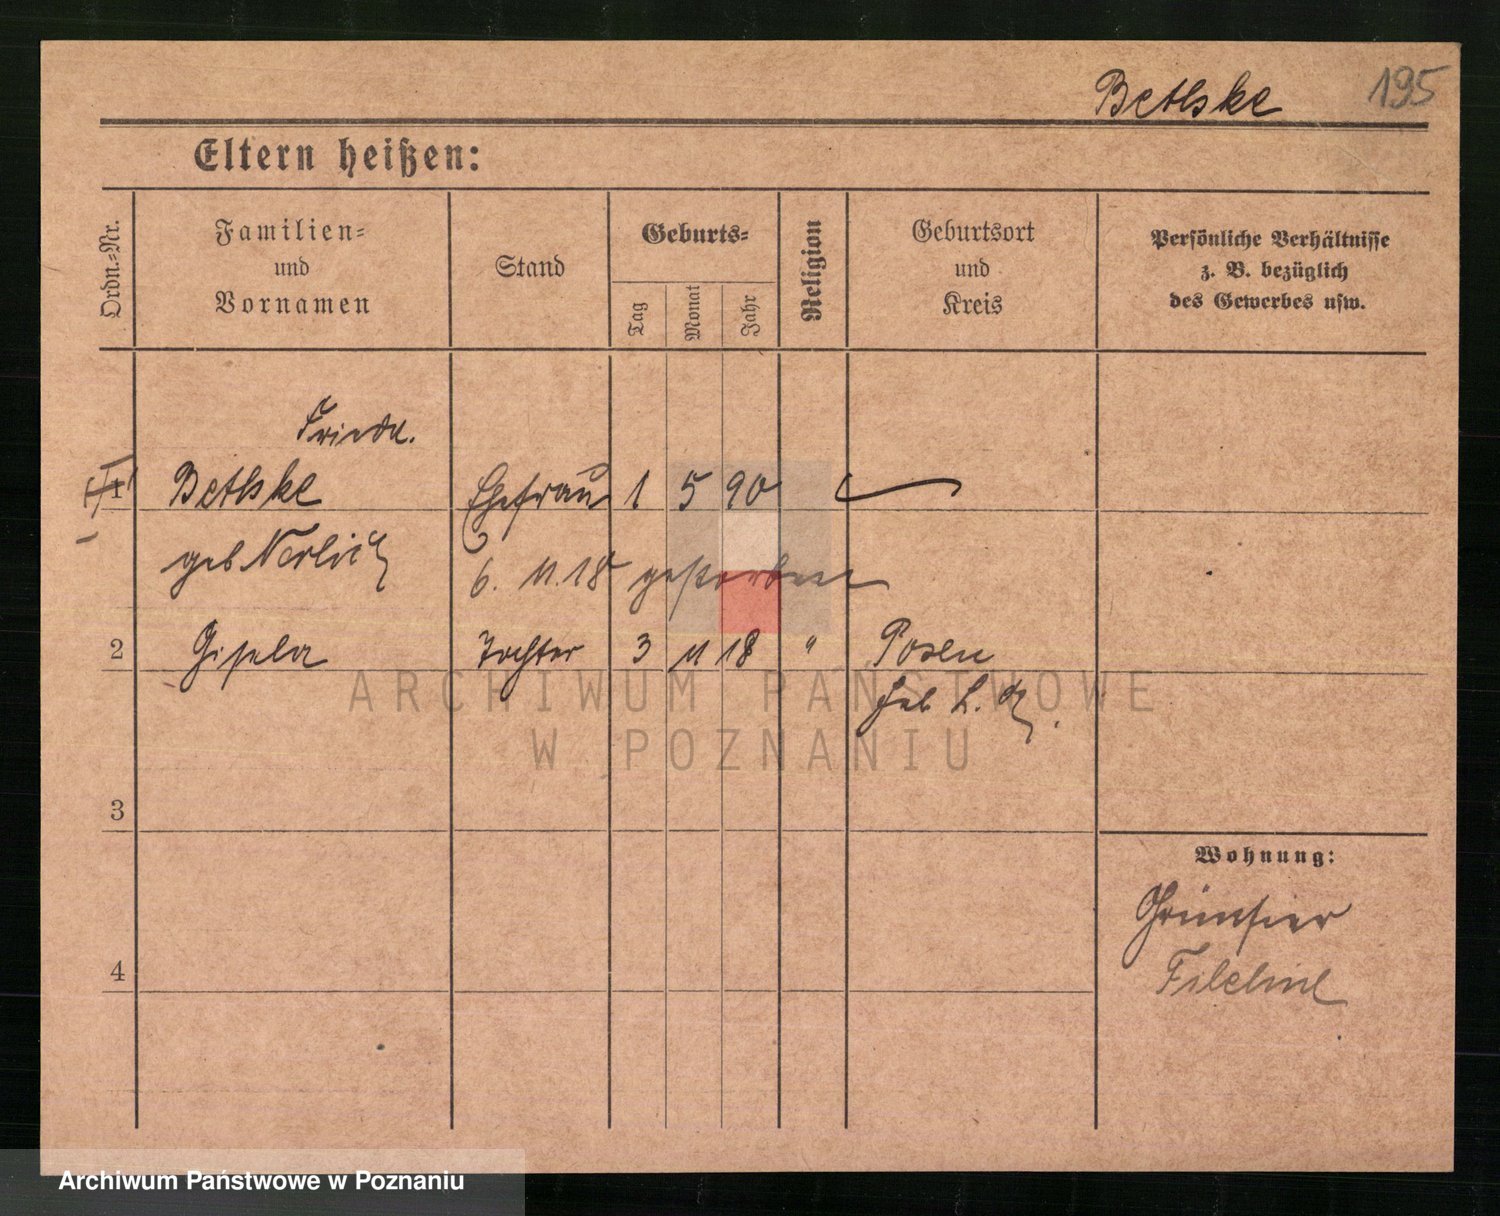 Bethke 195
Eltern heißen:
Ordn.-Nr.
Familien- und Vornamen
Stand
Geburts-
Tag
Monat
Jahr
Religion
Geburtsort und Kreis
Persönliche Verhältnisse z. B. bezüglich des Gewerbes usw.
Friedr.
1 Bethke Ehefrau 1 5 90
geb Nerlich
6. 11. 18 gestorben
2 Gisela Tochter 3 11 18 " Posen
ARCHIWUM PAŃSTWOWE
W POZNANIU
3
Wohnung:
Grünfier
Filehne
4
Archiwum Państwowe w Poznaniu